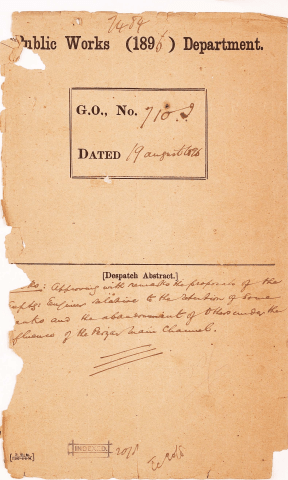 7484
Public Works (1896) Department.
G.O., No. 710.I
DATED 19 august 1896
[Despatch Abstract.]
Do: Approving with remarks the proposals of the
Suptg: Engineer relative to the retention of some
tanks and the abandonment of others under the
influence of the Periyar Main Channel.
INDEXED